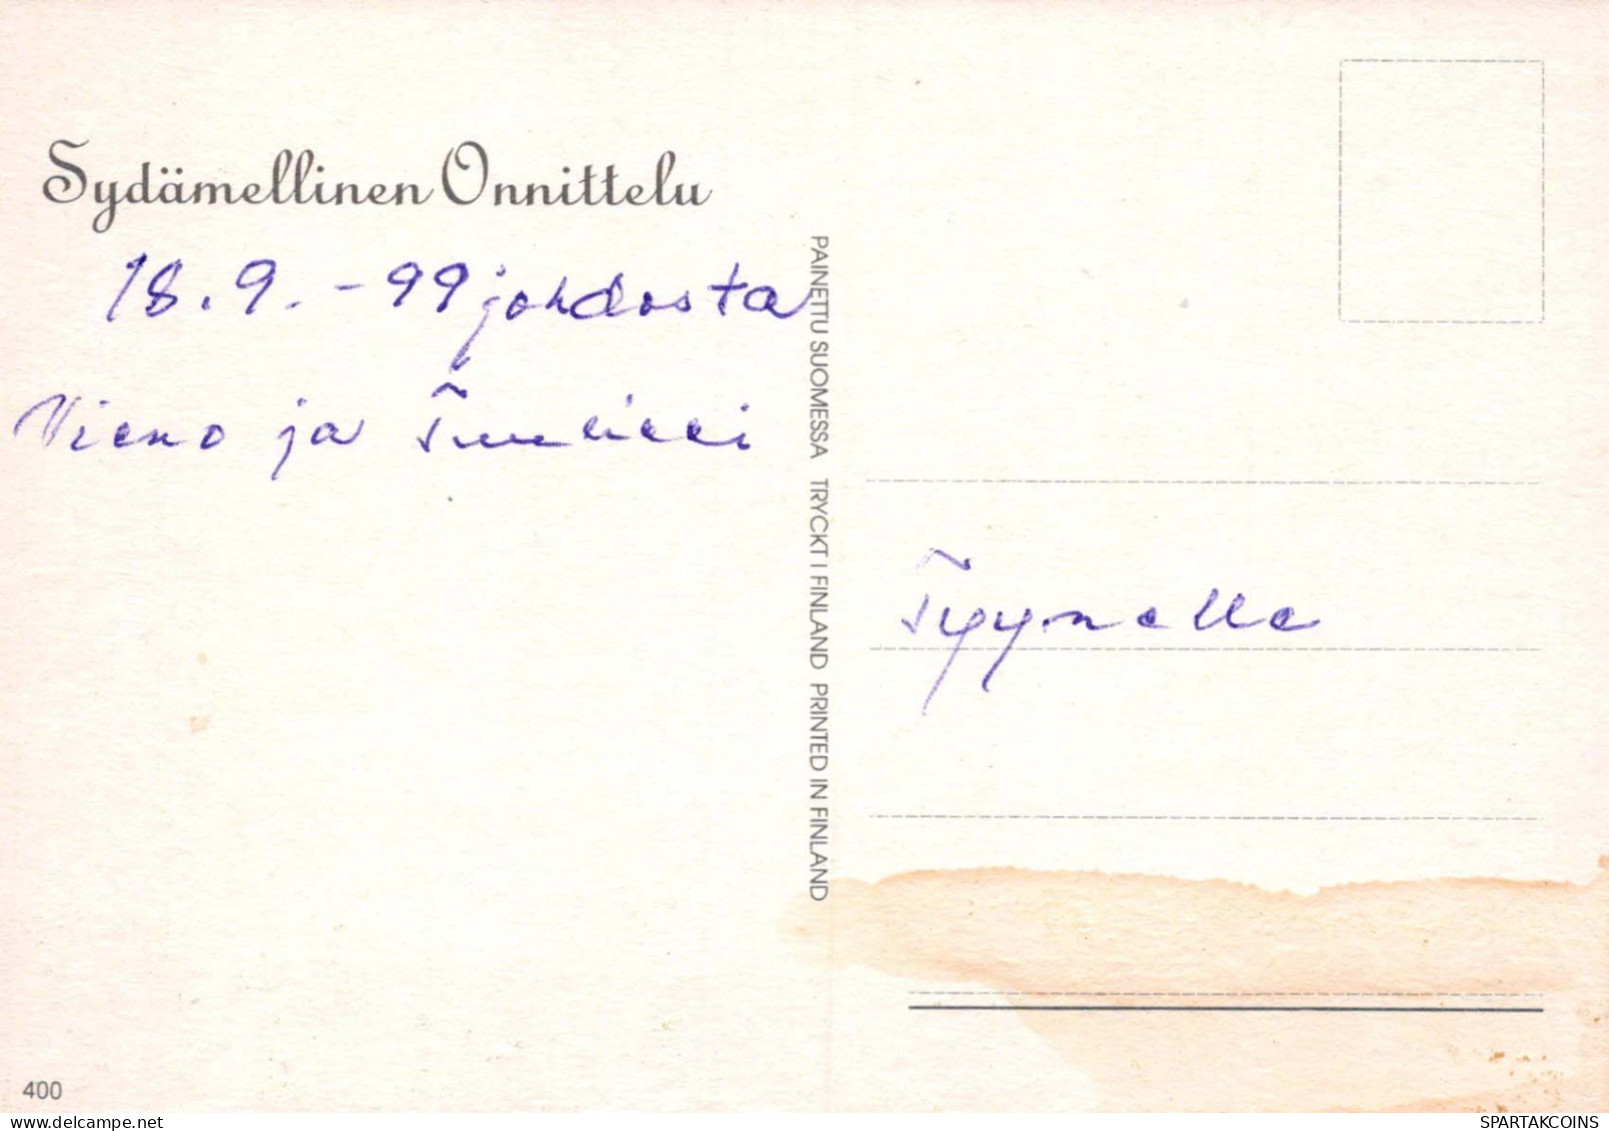 Sydämellinen Onnittelu
18.9.-99 johdosta
Vieno ja Tuulikki
PAINETTU SUOMESSA TRYCKT I FINLAND PRINTED IN FINLAND
Tyynelle
400
www.delcampe.net
SPARTAKCOINS